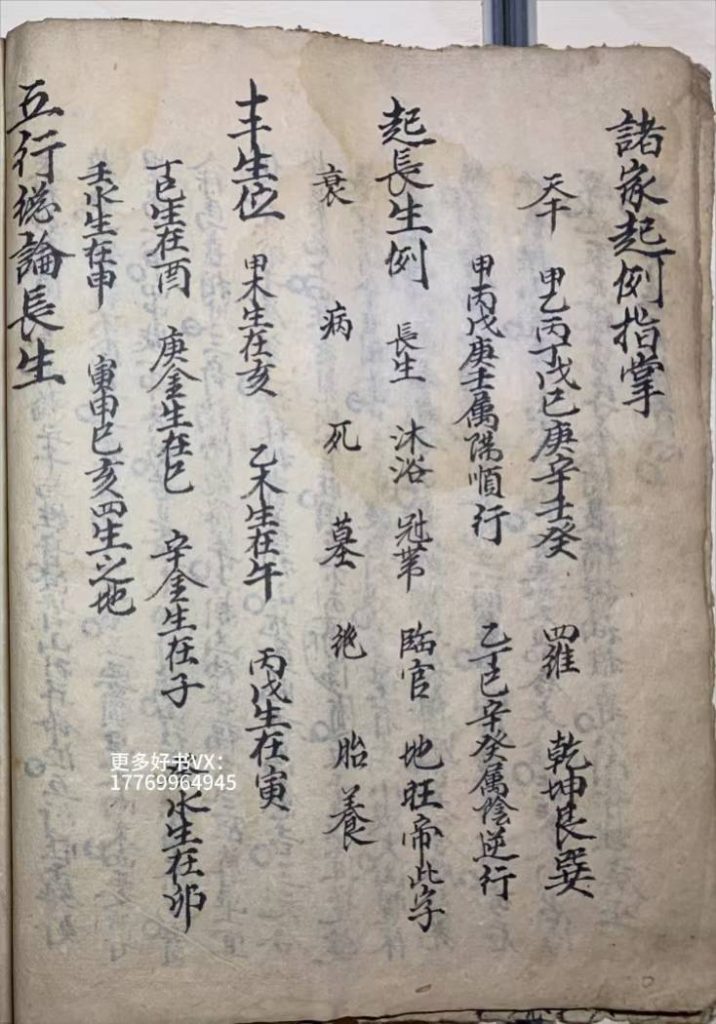 諸家起例指掌
天干 甲乙丙丁戊己庚辛壬癸 四維 乾坤艮巽
甲丙戊庚壬属陽順行 乙丁己辛癸属陰逆行
起長生例 長生 沐浴 冠帶 臨官 地旺帝此字
衰 病 死 墓 絶 胎 養
生位 甲木生在亥 乙木生在午 丙戊生在寅
丁己生在酉 庚金生在巳 辛金生在子 水生在卯
壬水生在申 寅申巳亥四生之地
五行総論長生
更多好书VX：
17769964945